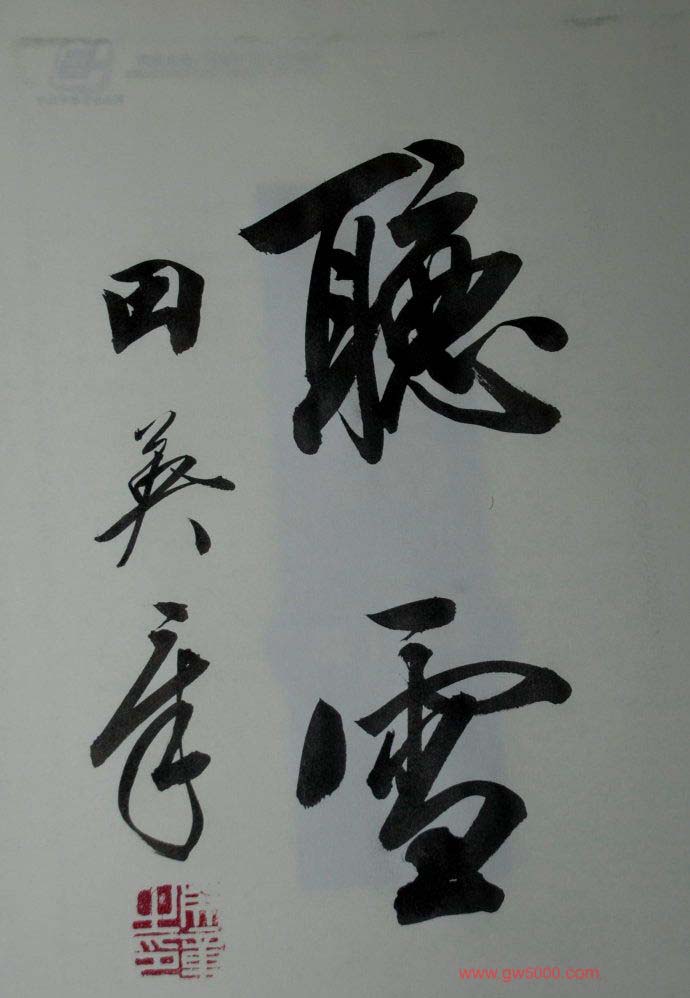 聽雪
田英章
www.gw5000.com